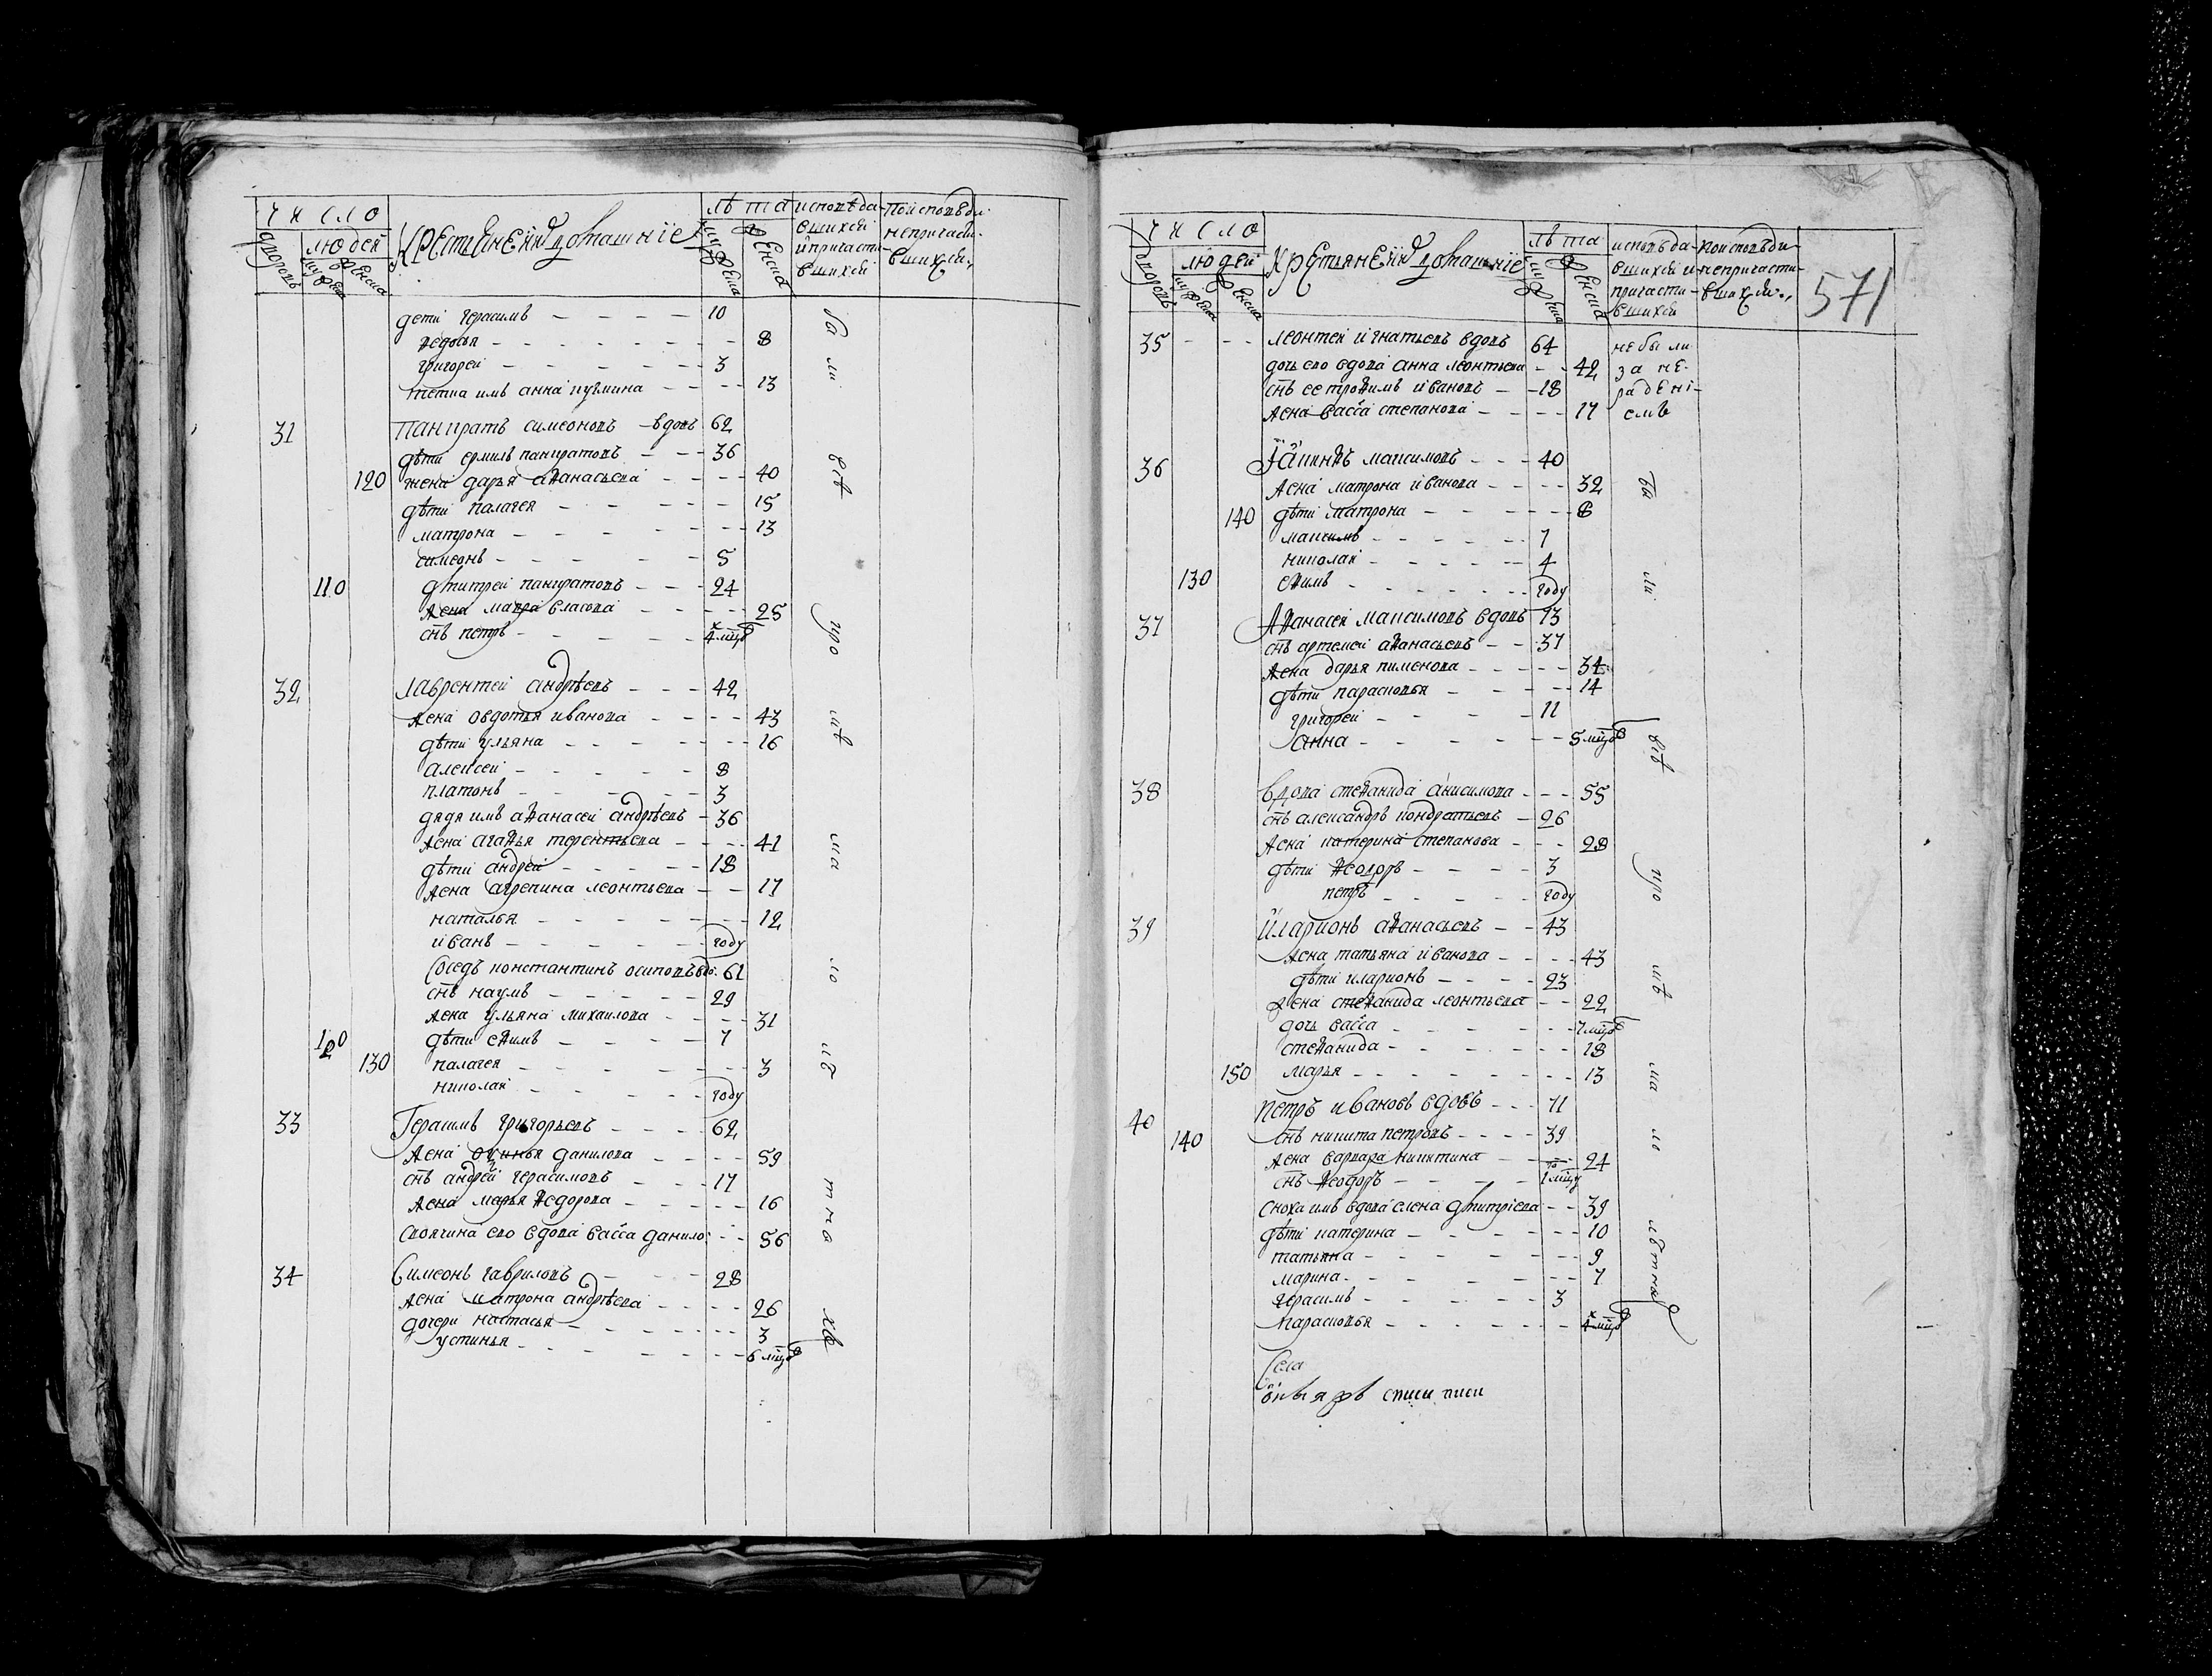 число
лѣта
исповѣда-
вшихся
и причасти-
вшихся
по исповѣди
непричасти-
вшихся
дворовъ
людей
мужеска
женска
Крестьяне и их домашнїе
мужеска
женска
дети герасимъ 10
ѳедосья 8
григорей 3
тетка имъ анна кузмина 13
31 панкратъ симеоновъ вдовъ 62
дѣти ермилъ панкратовъ 36
120 жена дарья аѳанасьева 40
дѣти палагея 15
матрона 13
симеонъ 5
110 дмитрей панкратовъ 24
жена мавра власова 25
снъ петръ 4 мцовъ
32 лаврентей андрѣевъ 42
жена овдотья иванова 43
дѣти ульяна 16
алексей 8
платонъ 3
дядя имъ аѳанасей андрѣевъ 36
жена агаѳья терентьева 41
дѣти андрей 18
жена агрепина леонтьева 17
наталья 12
иванъ году
Соседъ константинъ осиповъ вдо. 61
снъ наумъ 29
жена ульяна михаилова 31
120 дѣти еѳимъ 7
130 палагея 3
николай году
33 Герасимъ григорьевъ 62
жена данилова 59
снъ андрей герасимовъ 17
жена марья ѳедорова 16
своячина ево вдова васса данило: 56
34 Симеонъ гавриловъ 28
жена матрона андрѣева 26
дочери настасья 3
устинья 6 мцовъ
были
въ
петро
въ
число
дворовъ
людей
мужеска
женска
Крестьяне и их домашнїе
лѣта
мужеска
женска
исповѣда-
вшихся и
причасти-
вшихся
по исповѣди
непричасти-
вшихся
571
35 леонтей игнатьевъ вдовъ 64 не были
дочь ево вдова анна леонтьева 42 за не-
снъ ее троѳимъ ивановъ 18 радені-
жена васса степанова 17 емъ
36 Iакинѳъ максимовъ 40
жена матрона иванова 32
140 дѣти матрона 8
максимъ 7
николай 4
130 еѳимъ году
37 Аѳанасей максимовъ вдовъ 73
снъ артемей аѳанасьевъ 37
жена дарья пименова 34
дѣти парасковья 14
григорей 11
анна 5 мцовъ
38 вдова стеѳанида анисимова 55
снъ александръ кондратьевъ 26
жена катерина степанова 28
дѣти ѳеодоръ 3
петръ году
39 иларионъ аѳанасьевъ 43
жена татьяна иванова 43
дѣти иларионъ 23
жена стеѳанида леонтьева 22
дочь васса 7 мцовъ
стеѳанида 18
150 марья 13
40 петръ ивановъ вдовъ 71
140 снъ никита петровъ 39
жена варвара никитина 24
снъ ѳеодоръ 1 мцу
сноха имъ вдова елена дмитрїева 39
дѣти катерина 10
татьяна 9
марина 7
герасимъ 3
парасковья 4 мцовъ
Села